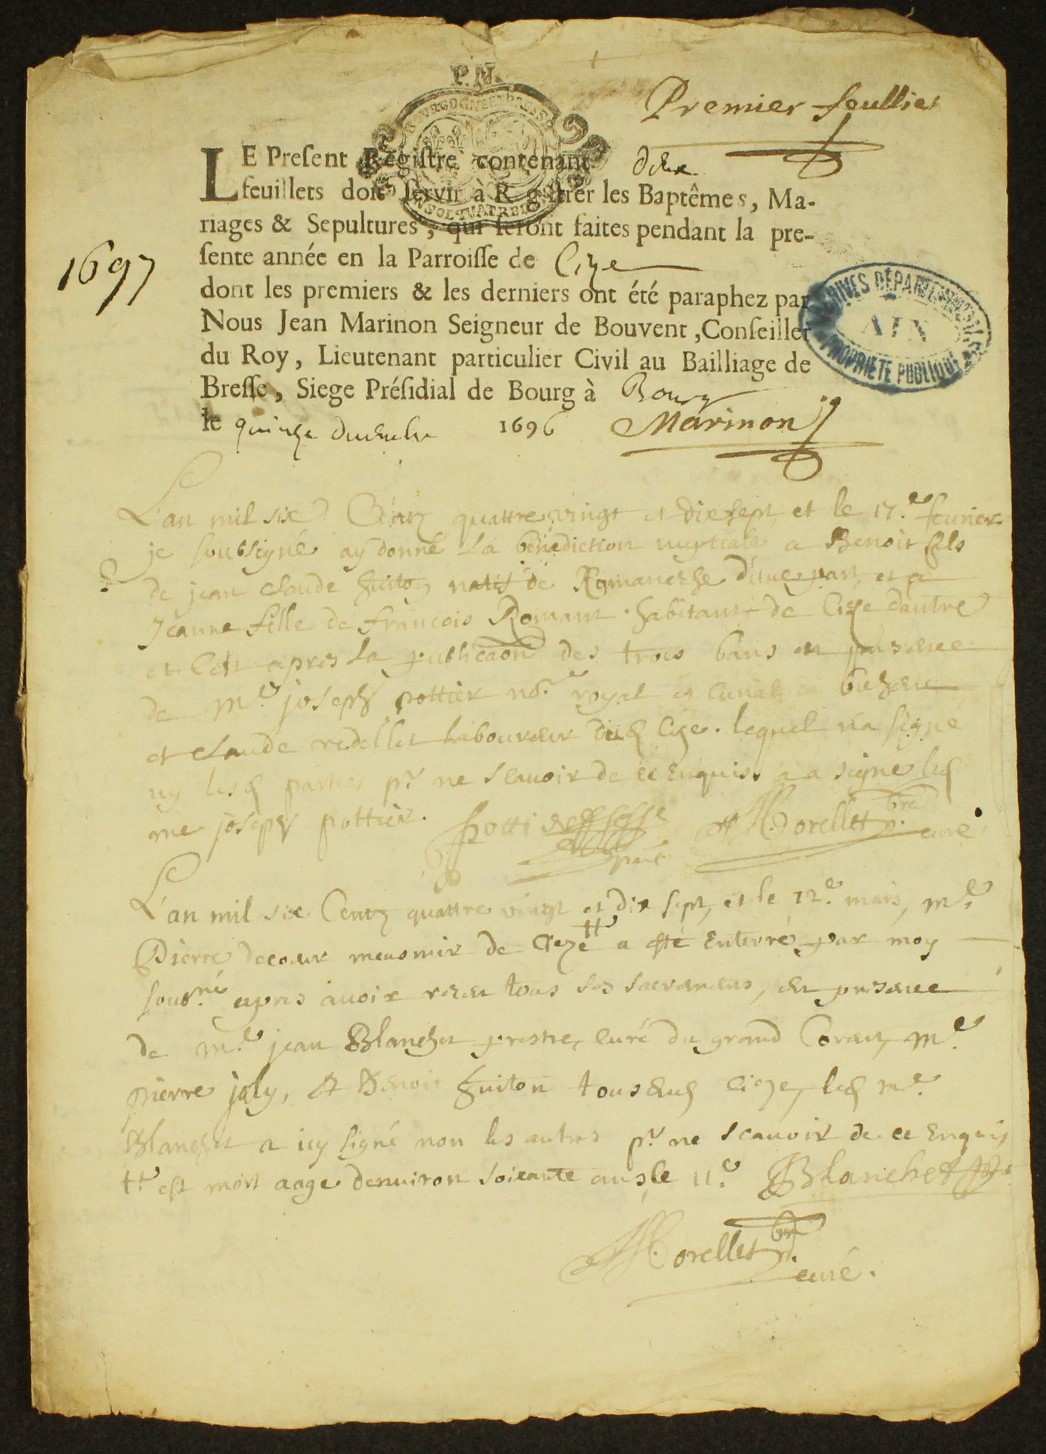 P.N.
Premier feullier
LE Preſent Regiſtre contenant deux
feuillets doit ſervir à Regiſtrer les Baptêmes, Ma-
riages & Sepultures, qui ſeront faites pendant la pre-
ſente année en la Parroiſſe de Cize
1697
dont les premiers & les derniers ont été paraphez par
Nous Jean Marinon Seigneur de Bouvent, Conſeiller
du Roy, Lieutenant particulier Civil au Bailliage de
Breſſe, Siege Préſidial de Bourg à Bourg
le quinze 1696 Marinon
ARCHIVES DÉPARTEMENTALES
AIN
PROPRIÉTÉ PUBLIQUE
L'an mil six Centz quattre vingt et diesept et le 17.e feurier
je soubsigné ay donné la benediction nuptiale a Benoit fils
de jean Claude guiton natif de Romanesche d'une part et a
Jeanne fille de francois Romant habitant de Cize dautre
et Cest apres la publicaon des trois bans en presence
de m.e joseph pottier no.re royal et
et Claude redellet laboureur dud Cize. lequel na signe
ny lesd parties p.r ne scauoir de ce Enquis a signe led
me joseph pottier. Morellet p.bre curé
L'an mil six Centz quattre vingt et dix sept, et le 12.e mars, m.e
Pierre decoeur de Cieze a esté Enterré par moy
soub.né apres auoir receu tous ses sacremens, en presence
de m.e jean Blanchet prestre, curé du grand Corent, m.e
pierre joly, et Benoit guiton tous dud Cieze, led m.e
Blanchet a icy signé non les autres p.r ne scauoir de ce Enquis
est mort aage denuiron soixante ans le 11.e Blanchet
Morellet p.bre
curé.